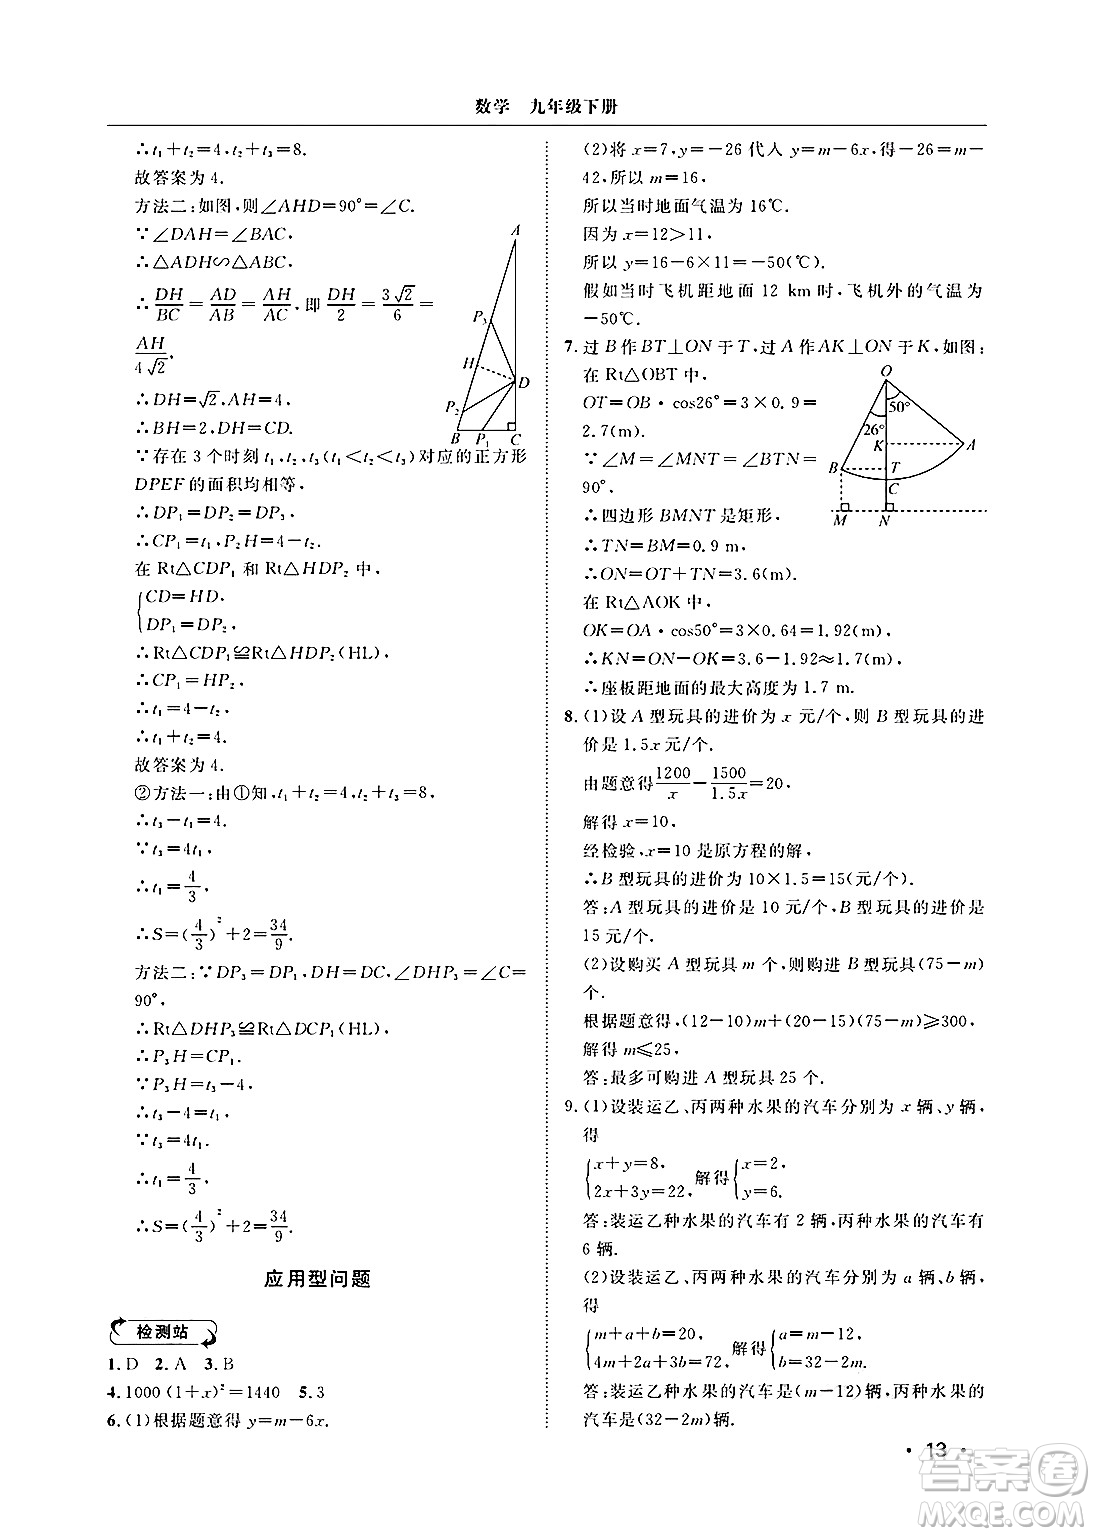 数学 九年级下册
∴t₁+t₂=4,t₂+t₃=8.
故答案为 4.
方法二:如图,则∠AHD=90°=∠C.
∵∠DAH=∠BAC,
∴△ADH∽△ABC,
∴DH/BC=AD/AB=AH/AC,即DH/2=3√2/6=
AH/4√2,
∴DH=√2,AH=4,
∴BH=2,DH=CD.
∵存在 3 个时刻 t₁,t₂,t₃(t₁<t₂<t₃)对应的正方形
DPEF 的面积均相等,
∴DP₁=DP₂=DP₃,
∴CP₁=t₁,P₂H=4-t₂.
在 Rt△CDP₁ 和 Rt△HDP₂ 中,
{CD=HD,
DP₁=DP₂,
∴Rt△CDP₁≌Rt△HDP₂(HL),
∴CP₁=HP₂,
∴t₁=4-t₂,
∴t₁+t₂=4.
故答案为 4.
②方法一:由①知,t₁+t₂=4,t₂+t₃=8,
∴t₃-t₁=4.
∵t₃=4t₁,
∴t₁=4/3,
∴S=(4/3)²+2=34/9.
方法二:∵DP₃=DP₁,DH=DC,∠DHP₃=∠C=
90°,
∴Rt△DHP₃≌Rt△DCP₁(HL),
∴P₃H=CP₁.
∵P₃H=t₃-4,
∴t₃-4=t₁,
∵t₃=4t₁.
∴t₁=4/3,
∴S=(4/3)²+2=34/9.
A
P₃
H
D
P₂
B
P₁
C
应用型问题
检测站
1.D 2.A 3.B
4.1000(1+x)²=1440 5.3
6.(1)根据题意得 y=m-6x.
(2)将 x=7,y=-26 代入 y=m-6x,得-26=m-
42,所以 m=16,
所以当时地面气温为 16℃.
因为 x=12>11,
所以 y=16-6×11=-50(℃).
假如当时飞机距地面 12 km 时,飞机外的气温为
-50℃.
7.过 B 作 BT⊥ON 于 T,过 A 作 AK⊥ON 于 K,如图:
在 Rt△OBT 中,
OT=OB·cos26°=3×0.9=
2.7(m).
∵∠M=∠MNT=∠BTN=
90°,
∴四边形 BMNT 是矩形,
∴TN=BM=0.9 m,
∴ON=OT+TN=3.6(m).
在 Rt△AOK 中,
OK=OA·cos50°=3×0.64=1.92(m),
∴KN=ON-OK=3.6-1.92≈1.7(m).
∴座板距地面的最大高度为 1.7 m.
O
50°
26°
K
A
B
T
C
M
N
8.(1)设 A 型玩具的进价为 x 元/个,则 B 型玩具的进
价是 1.5x 元/个.
由题意得1200/x-1500/1.5x=20,
解得 x=10,
经检验,x=10 是原方程的解,
∴B 型玩具的进价为 10×1.5=15(元/个).
答:A 型玩具的进价是 10 元/个,B 型玩具的进价是
15 元/个.
(2)设购买 A 型玩具 m 个,则购进 B 型玩具(75-m)
个.
根据题意得,(12-10)m+(20-15)(75-m)≥300,
解得 m≤25,
答:最多可购进 A 型玩具 25 个.
9.(1)设装运乙、丙两种水果的汽车分别为 x 辆、y 辆,
得
{x+y=8,
2x+3y=22,
解得
{x=2,
y=6.
答:装运乙种水果的汽车有 2 辆,丙种水果的汽车有
6 辆.
(2)设装运乙、丙两种水果的汽车分别为 a 辆、b 辆,
得
{m+a+b=20,
4m+2a+3b=72,
解得
{a=m-12,
b=32-2m.
答:装运乙种水果的汽车是(m-12)辆,丙种水果的
汽车是(32-2m)辆.
· 13 ·
答案圈
MXQE.COM